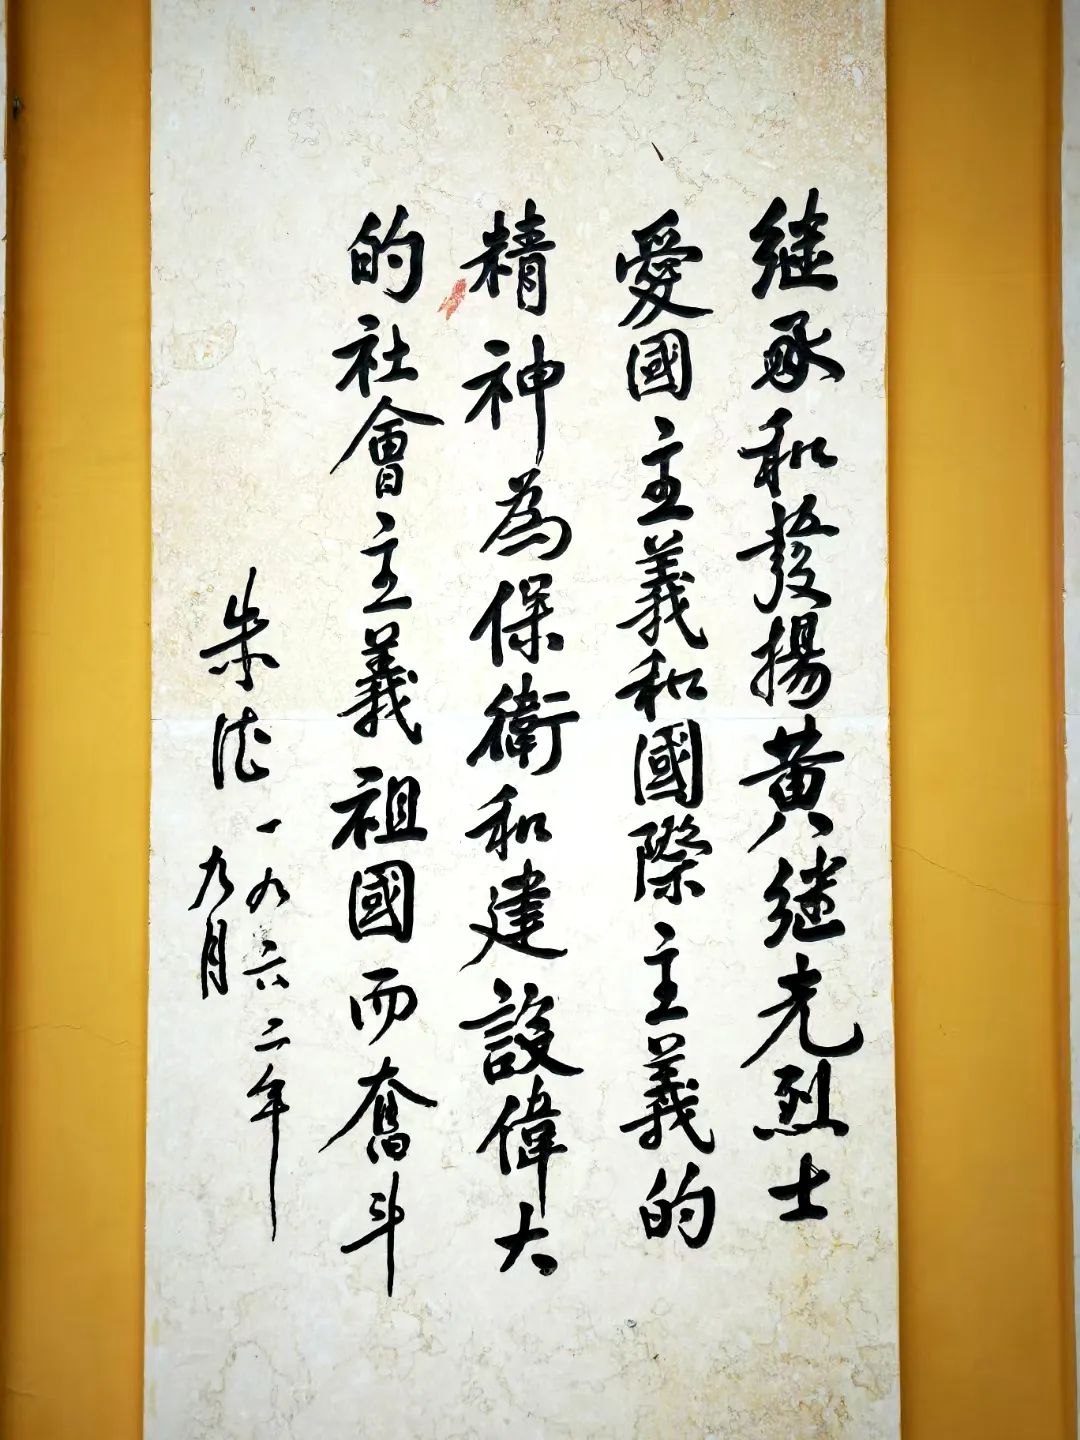 继承和發揚黄继光烈士
愛國主義和國際主義的
精神為保衛和建設偉大
的社會主義祖國而奮斗
朱德
一九六二年
九月